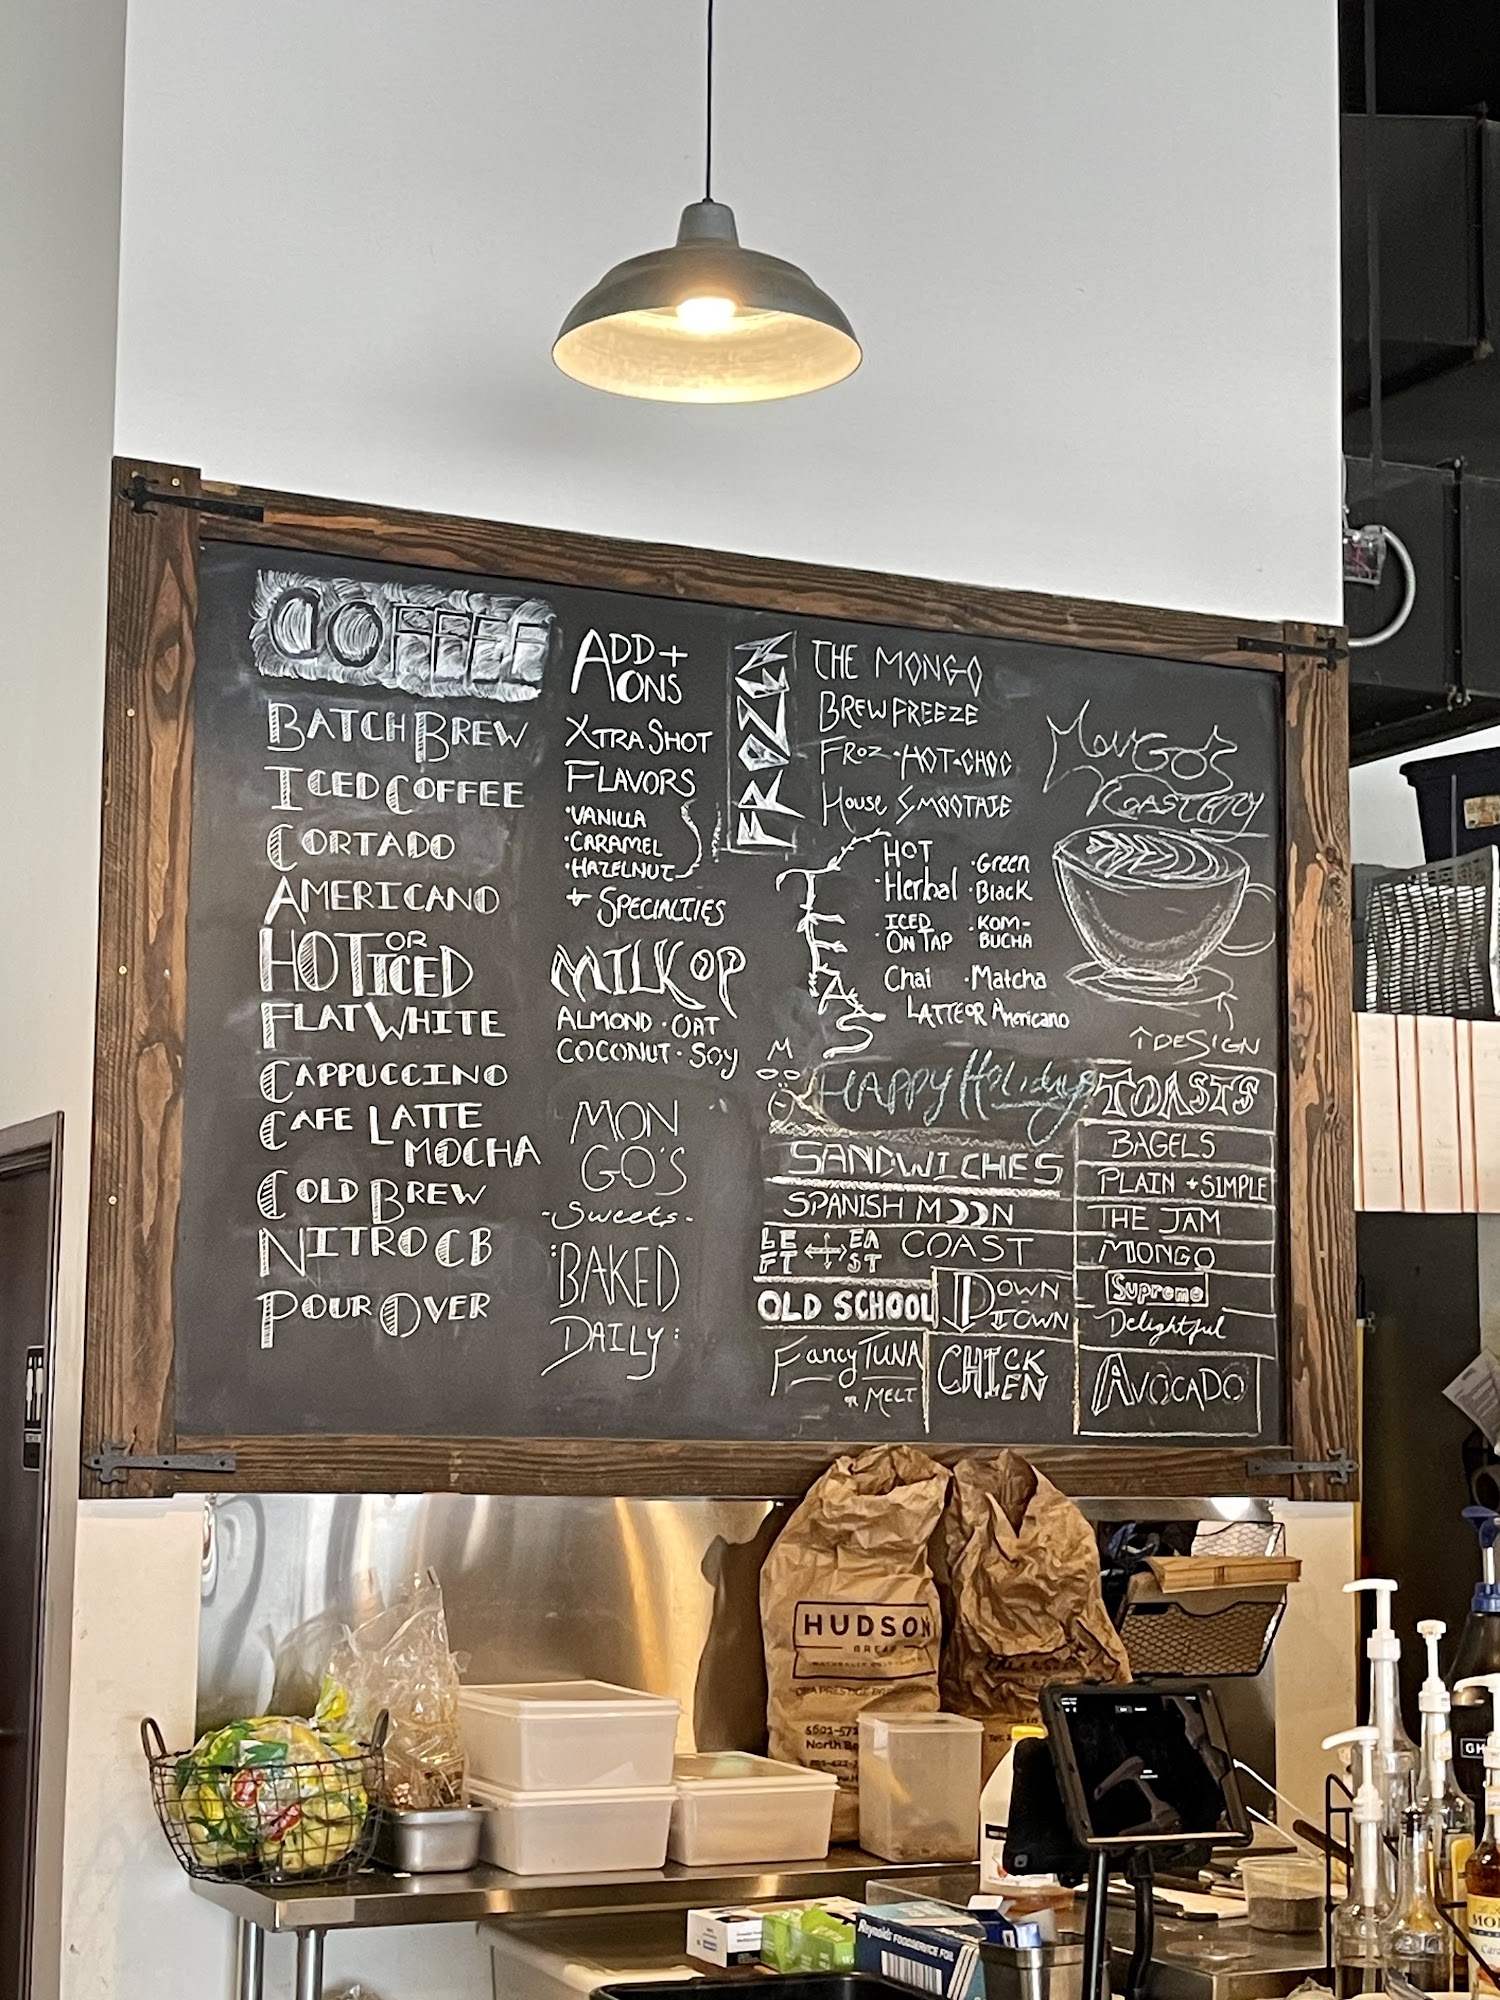 COFFEE
BATCH BREW
ICED COFFEE
CORTADO
AMERICANO
HOT OR ICED
FLAT WHITE
CAPPUCCINO
CAFE LATTE
MOCHA
COLD BREW
NITRO CB
POUR OVER
ADD +
ONS
XTRA SHOT
FLAVORS
·VANILLA
·CARAMEL
·HAZELNUT
+ SPECIALTIES
MILK OP
ALMOND · OAT
COCONUT · SOY
MON
GO'S
-Sweets-
:BAKED
DAILY:
FROZEN
THE MONGO
BREW FREEZE
FROZ-HOT-CHOC
House SMOOTHIE
TEAS
HOT
·Herbal
·Green
·Black
ICED
·ON TAP
·KOM-
BUCHA
Chai
·Matcha
LATTE OR Americano
MONGO'S
ROASTERY
↑DESIGN
HAPPY Holidays
SANDWICHES
SPANISH MOON
LEFT EAST COAST
OLD SCHOOL
DOWN
TOWN
Fancy TUNA
or MELT
CHICK
EN
TOASTS
BAGELS
PLAIN + SIMPLE
THE JAM
MONGO
Supreme
Delightful
AVOCADO
HUDSON
BREAD
North Be
Reynolds FOODSERVICE FOIL
GH